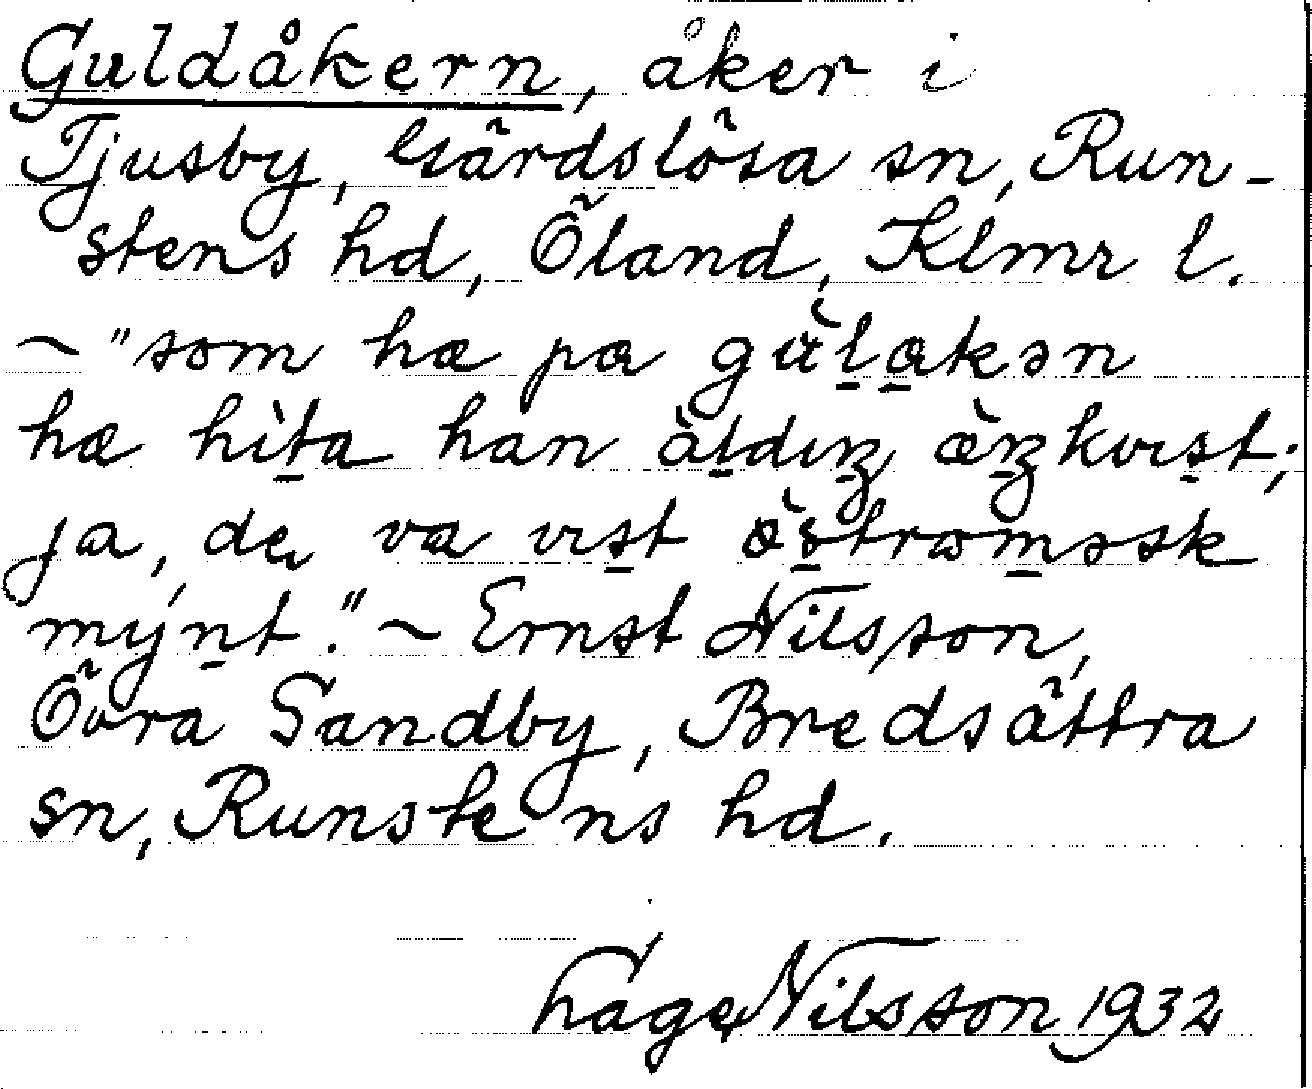 Guldåkern, åker i
Tjusby, Gärdslösa sn, Run-
stens hd, Öland, Klmr l.
~ "som hæ pɑ gὺl̠ɑ̠kən
hæ hìt̠a han àt̠dɪn̠ʒ
ja, de va vɪs̠t
mýn̠t." ~ Ernst Nilsson,
Övra Sandby, Bredsättra
sn, Runstens hd.
Åage Nilsson 1932